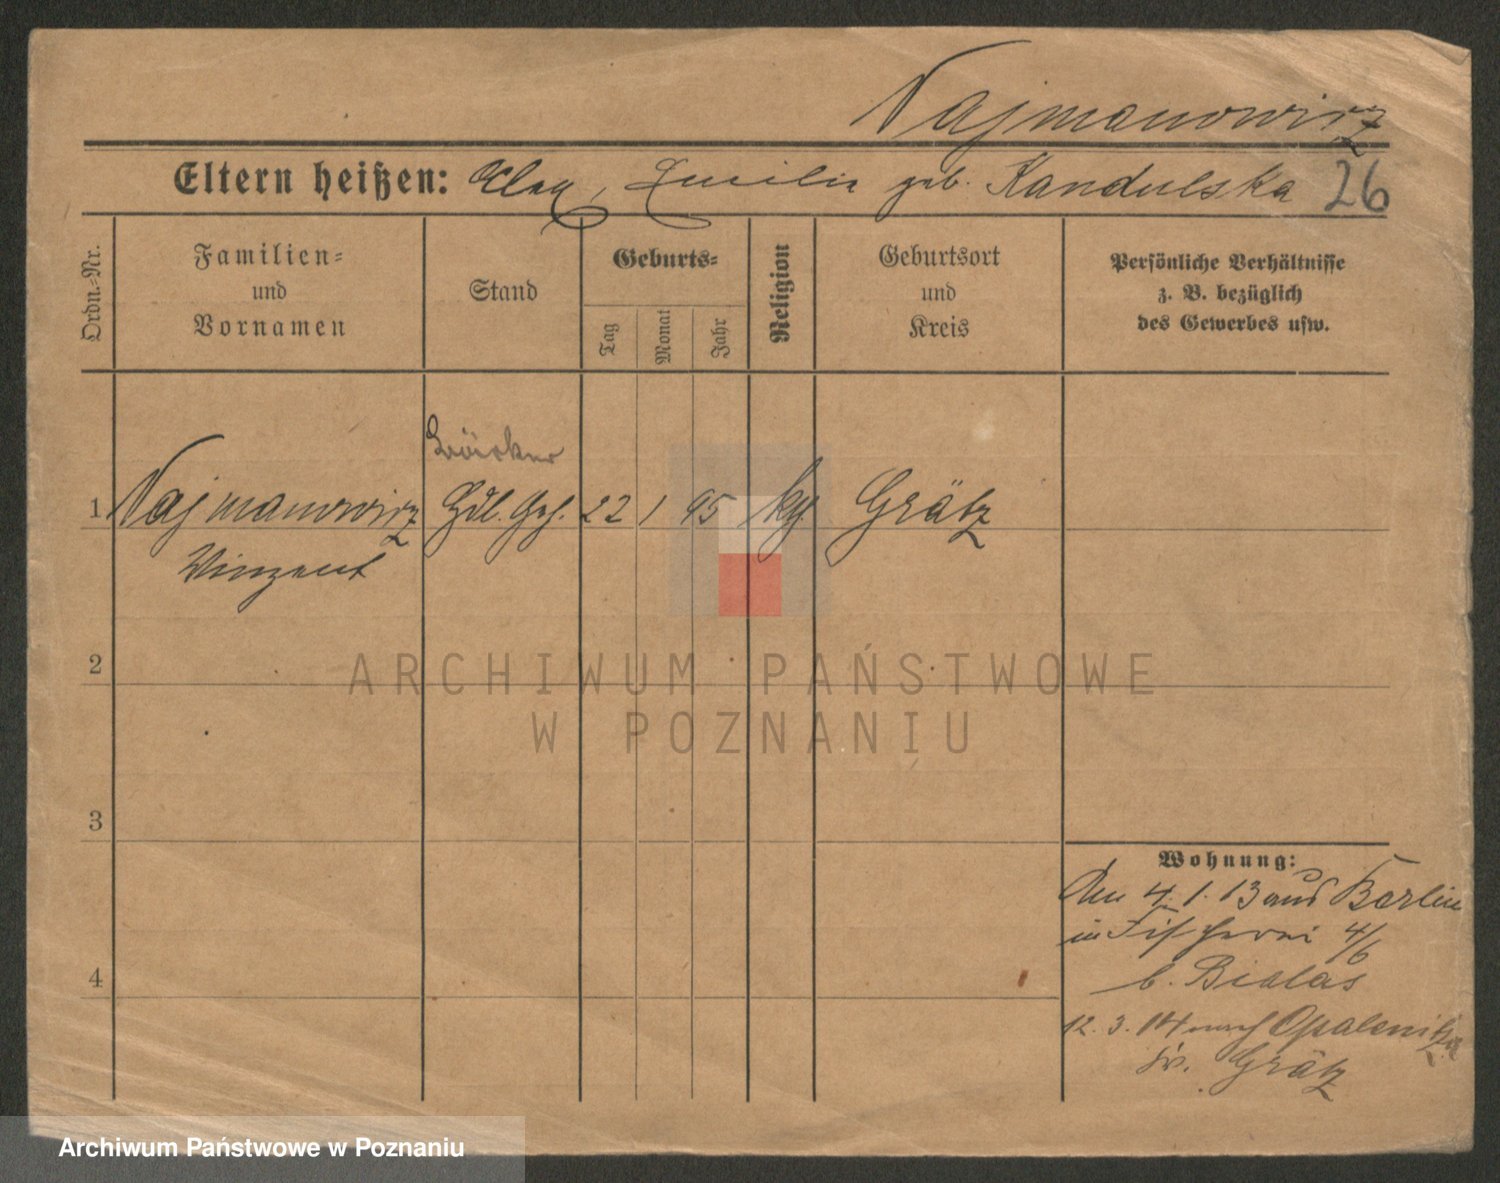 Najmanowicz
Eltern heißen: Alex, Emilie geb. Kandulska 26
Ordn.-Nr.
Familien-
und
Vornamen
Stand
Geburts-
Tag
Monat
Jahr
Religion
Geburtsort
und
Kreis
Persönliche Verhältnisse
z. B. bezüglich
des Gewerbes usw.
1 Najmanowicz Hdl. Geh. 22 1 95 kg. Grätz
Vinzent
2
ARCHIWUM PAŃSTWOWE
W POZNANIU
3
4
Wohnung:
Den 4. 1. 13 aus Berlin
in Fischerei 4/6
b. Bialas
12. 3. 14 nach Opalenitza
Kr. Grätz
Archiwum Państwowe w Poznaniu